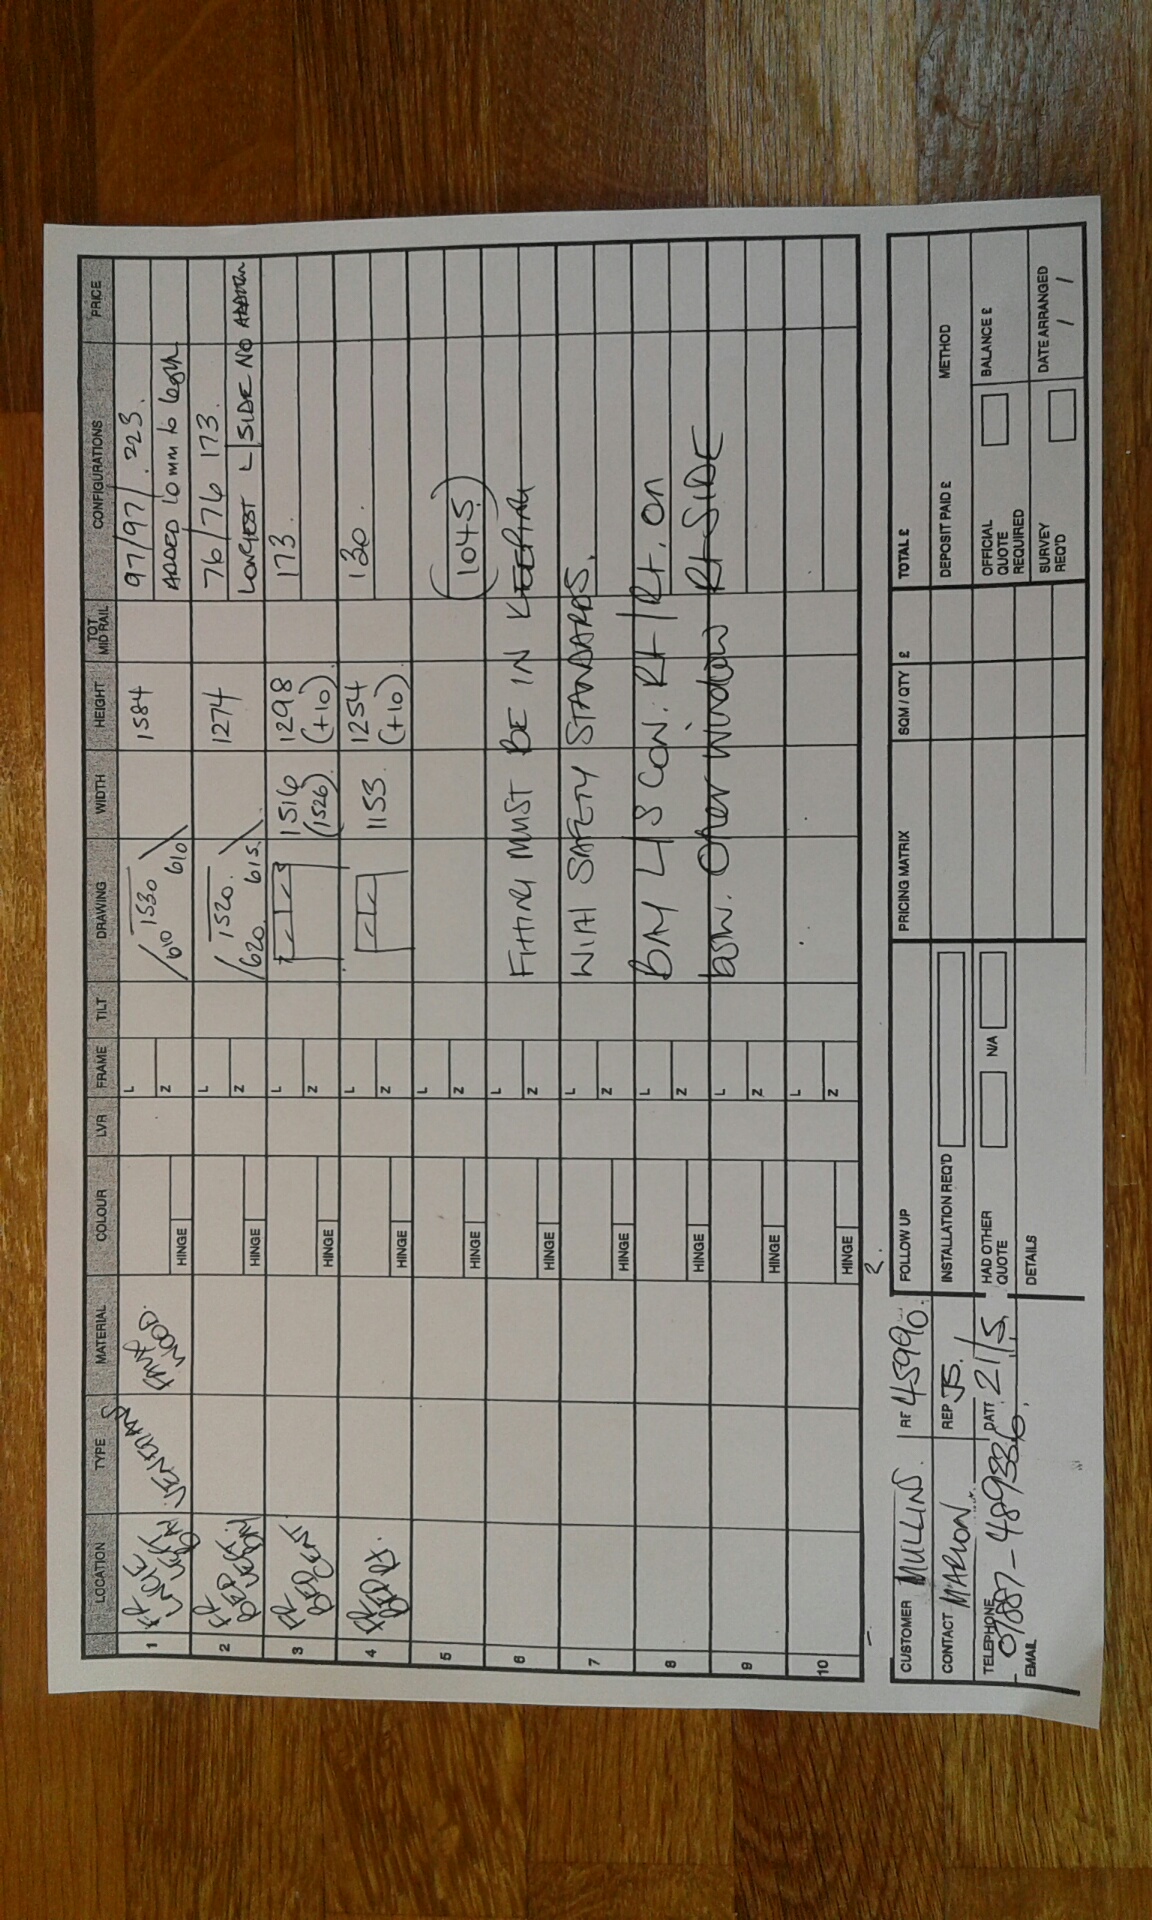 LOCATION TYPE MATERIAL COLOUR LVR FRAME TILT DRAWING WIDTH HEIGHT TOT MID RAIL CONFIGURATIONS PRICE
1 VENETIANS FAUX WOOD. HINGE L Z 610 1530 610 1584 97/97/.223.
ADDED 10mm to length
2 FR BED HINGE L Z 620 1520. 615. 1274 76/76 173.
LONGEST L SIDE NO
3 FR BED HINGE L Z 1516 (1526) 1298 (+10) 173.
4 FR BED HINGE L Z 1153. 1254 (+10) 130.
5 HINGE L Z (1045)
6 HINGE L Z FITTING MUST BE IN KEEPING
7 HINGE L Z WITH SAFETY STANDARDS.
8 HINGE L Z BAY L/S CON. Rt/Rt. on
9 HINGE L Z Other window Rt SIDE
10 HINGE L Z
CUSTOMER MULLINS. 45990
CONTACT MARION REP JS.
TELEPHONE 07887-489336. DATE 21/5
EMAIL
FOLLOW UP
INSTALLATION REQ'D
HAD OTHER QUOTE N/A
DETAILS
PRICING MATRIX SQM / QTY £
TOTAL £
DEPOSIT PAID £ METHOD
OFFICIAL QUOTE REQUIRED BALANCE £
SURVEY REQ'D DATE ARRANGED / /